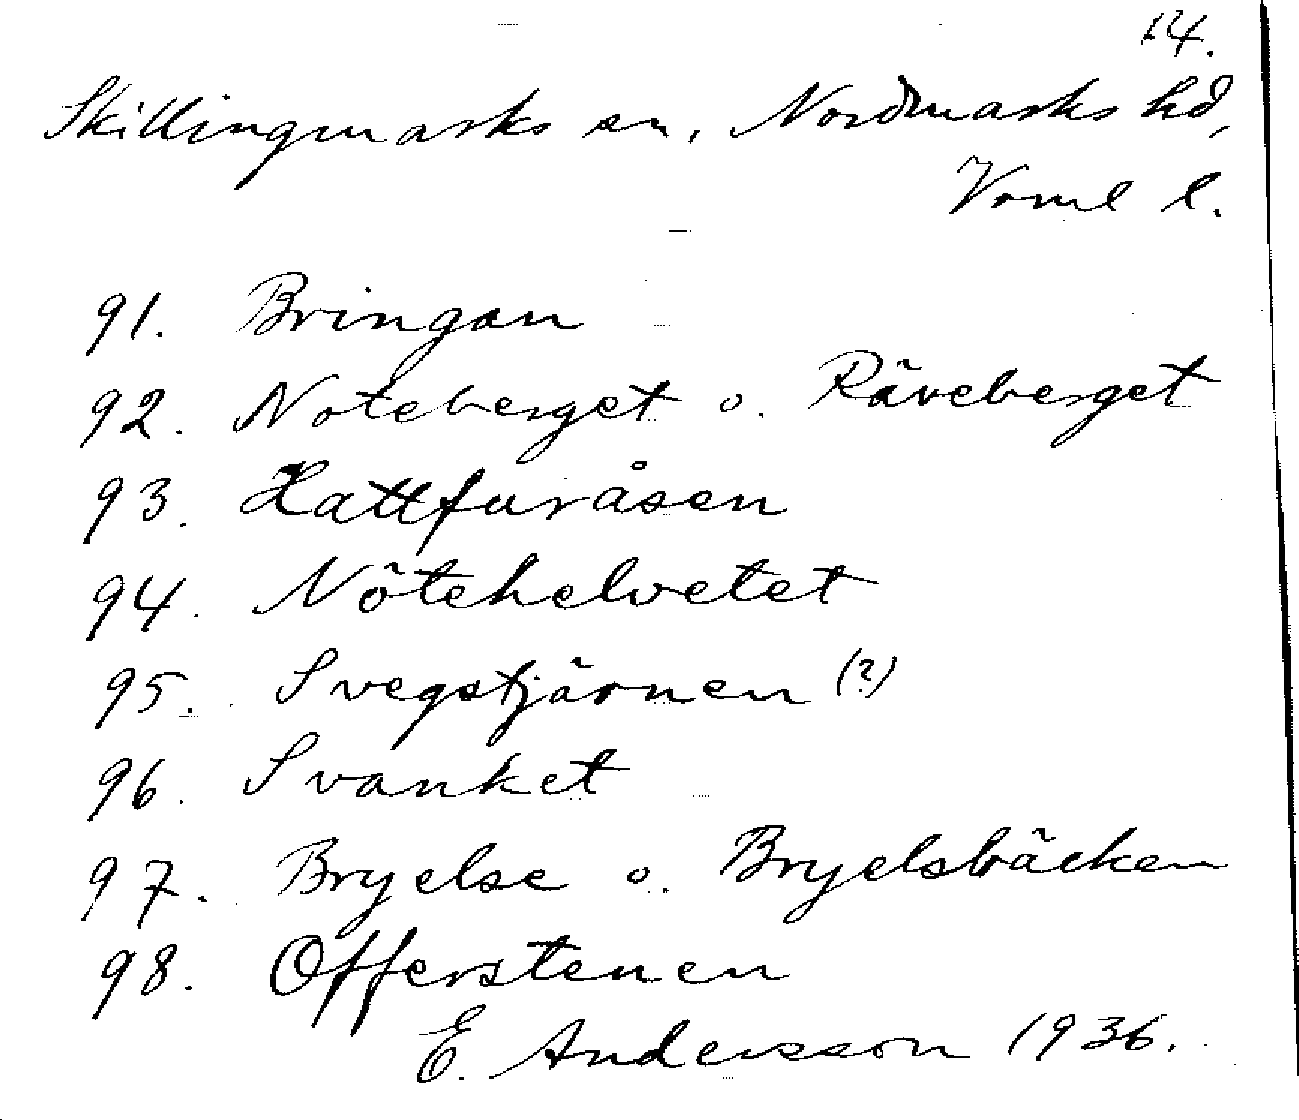 14.
Skillingmarks sn, Nordmarks hd,
Vrml l.
91. Bringan
92. Noteberget o. Räveberget
93. Hattfuråsen
94. Nötehelvetet
95. Svegstjärnen (?)
96. Svanket
97. Bryelse o. Bryelsbäcken
98. Offerstenen
E. Andersson 1936.